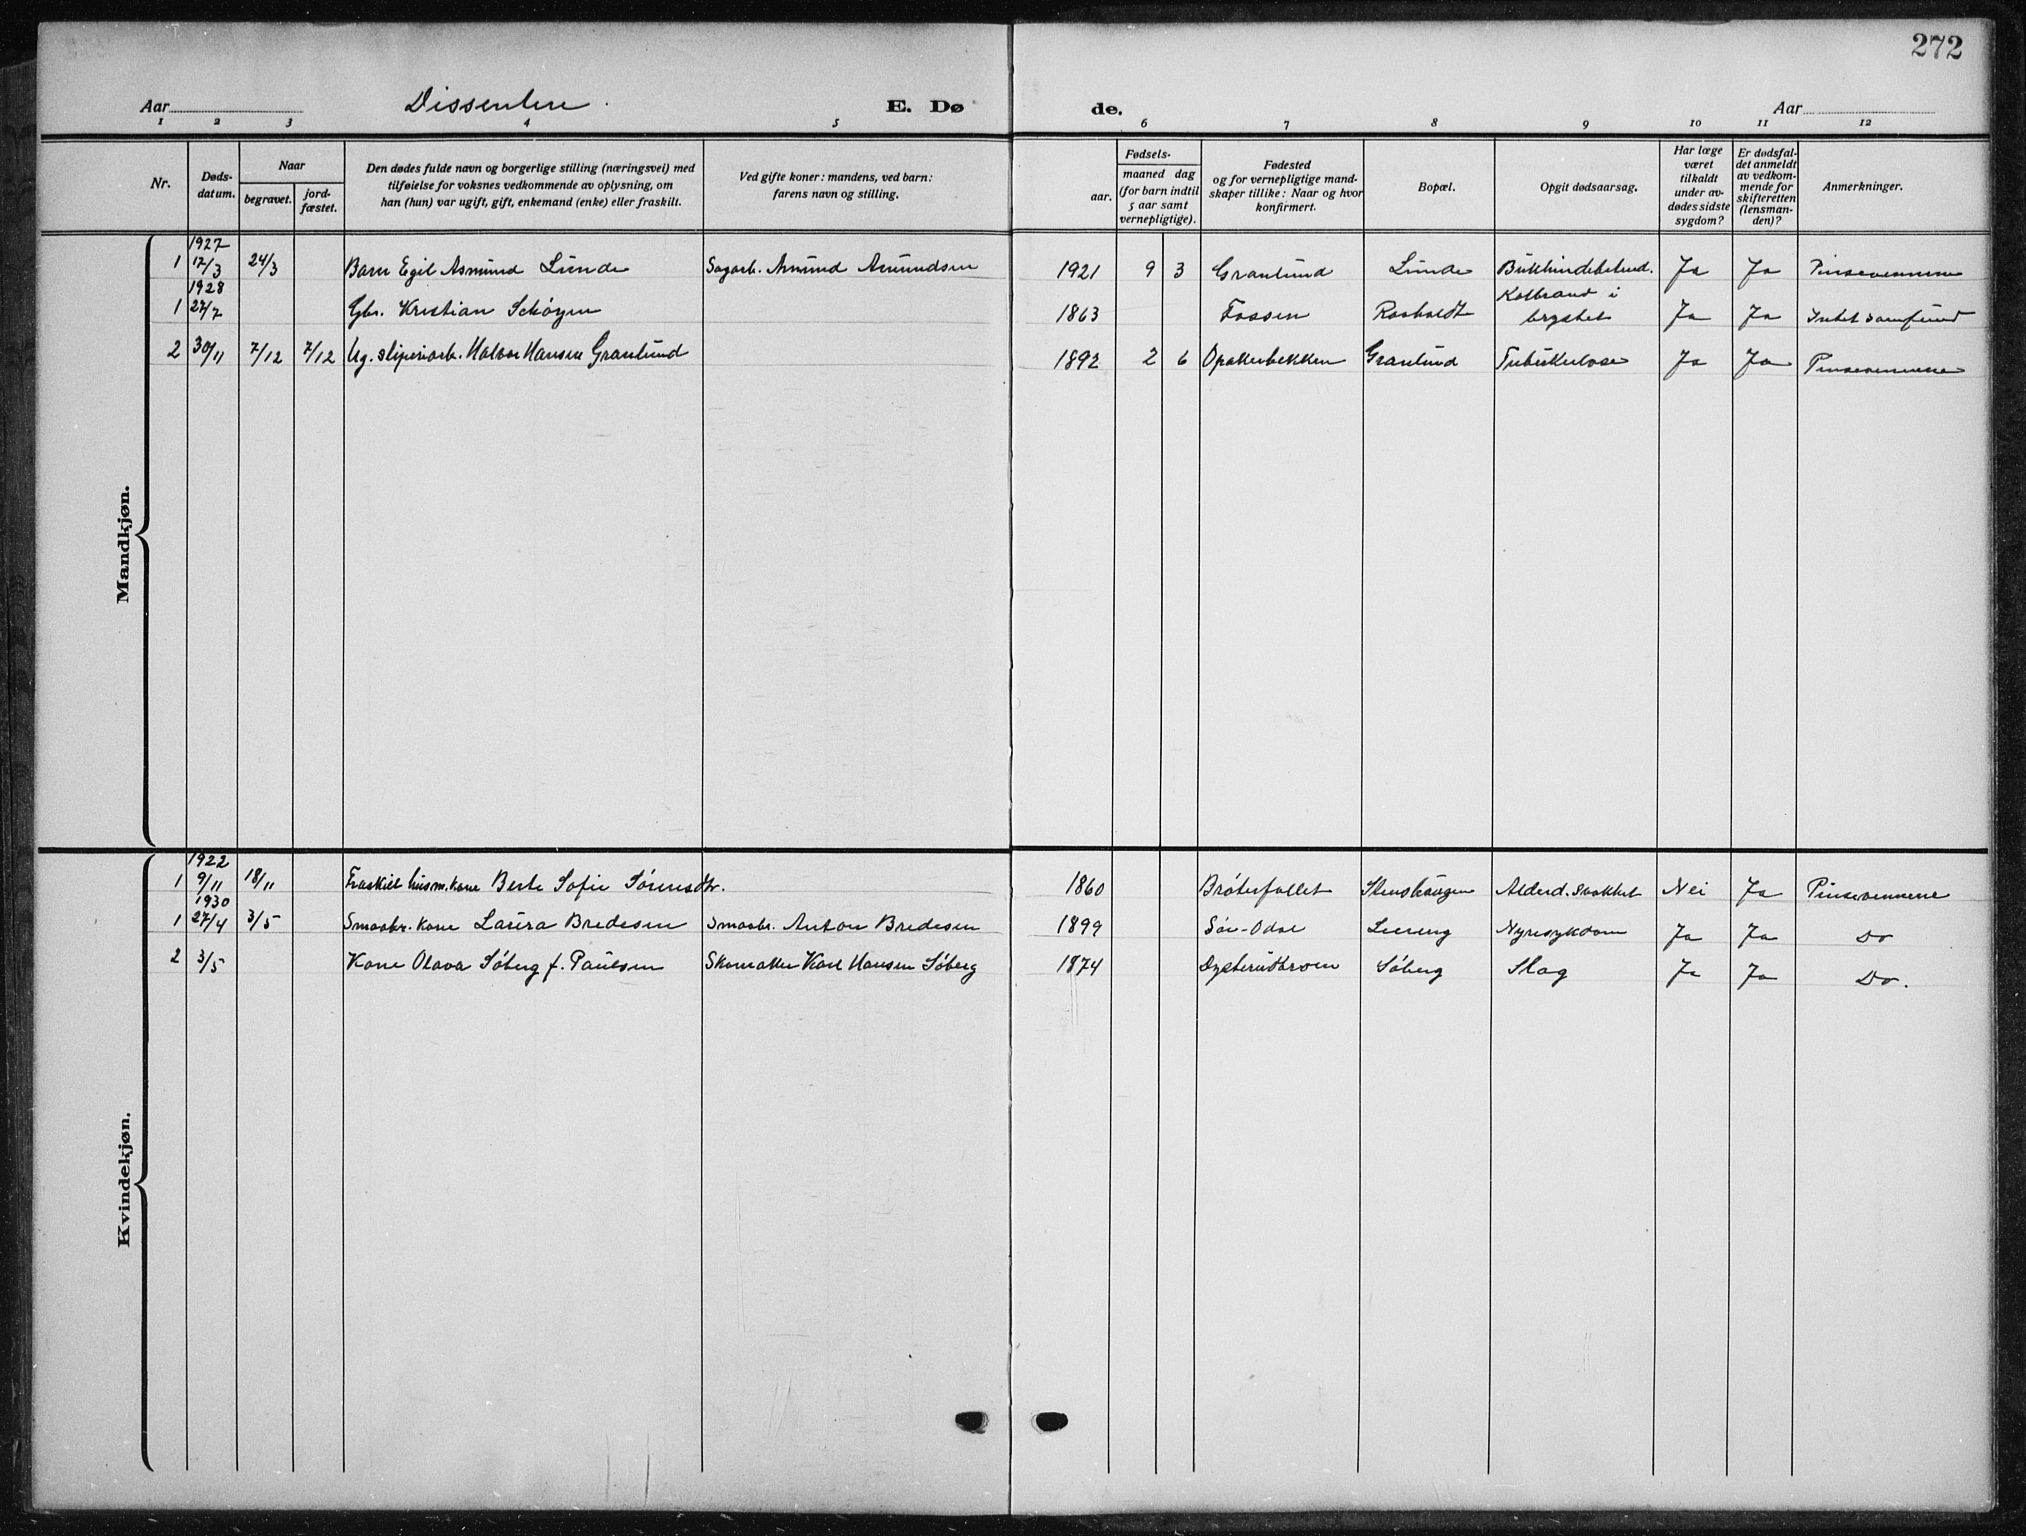 272
Aar Dissentere. E. Dø de. Aar
1 2 3 4 5 6 7 8 9 10 11 12
Nr.
Døds-
datum.
Naar
begravet.
jord-
fæstet.
Den dødes fulde navn og borgerlige stilling (næringsvei) med
tilføielse for voksnes vedkommende av oplysning, om
han (hun) var ugift, gift, enkemand (enke) eller fraskilt.
Ved gifte koner: mandens, ved barn:
farens navn og stilling.
aar.
Fødsels-
maaned dag
(for barn indtil
5 aar samt
vernepligtige).
Fødested
og for vernepligtige mand-
skaper tillike: Naar og hvor
konfirmert.
Bopæl.
Opgit dødsaarsag.
Har læge
været
tilkaldt
under av-
dødes sidste
sygdom?
Er dødsfal-
det anmeldt
av vedkom-
mende for
skifteretten
(lensman-
den)?
Anmerkninger.
Mandkjøn.
1927
1 17/3 24/3 Barn Egil Asmund Lunde Sagarb. Amund Amundsen 1921 9 3 Granlund Lunde Bukhindebetænd. Ja Ja Pinsevennene
1928
Koldbrand i
1 27/7 Gbr. Kristian Schøyen 1863 Fossen Raaholdt brystet Ja Ja Intet samfund
2 30/11 7/12 7/12 Ug. sliperiarb. Halvor Hansen Granlund 1892 2 6 Opakerbekken Granlund Tuberkulose Ja Ja Pinsevennene
Kvindekjøn.
1922
1 9/11 18/11 Fraskilt husm. kone Berte Sofie Sørensdtr. 1860 Brøterfallet Stenshaugen Alderd. svakhet Nei Ja Pinsevennene
1930
1 27/4 3/5 Smaabr. kone Laura Bredesen Smaabr. Anton Bredesen 1899 Sør-Odal Nyresykdom Ja Ja Do
2 3/5 Kone Olava Søberg f. Paulsen Skomaker Karl Hansen Søberg 1874 Søberg Slag Ja Ja Do.